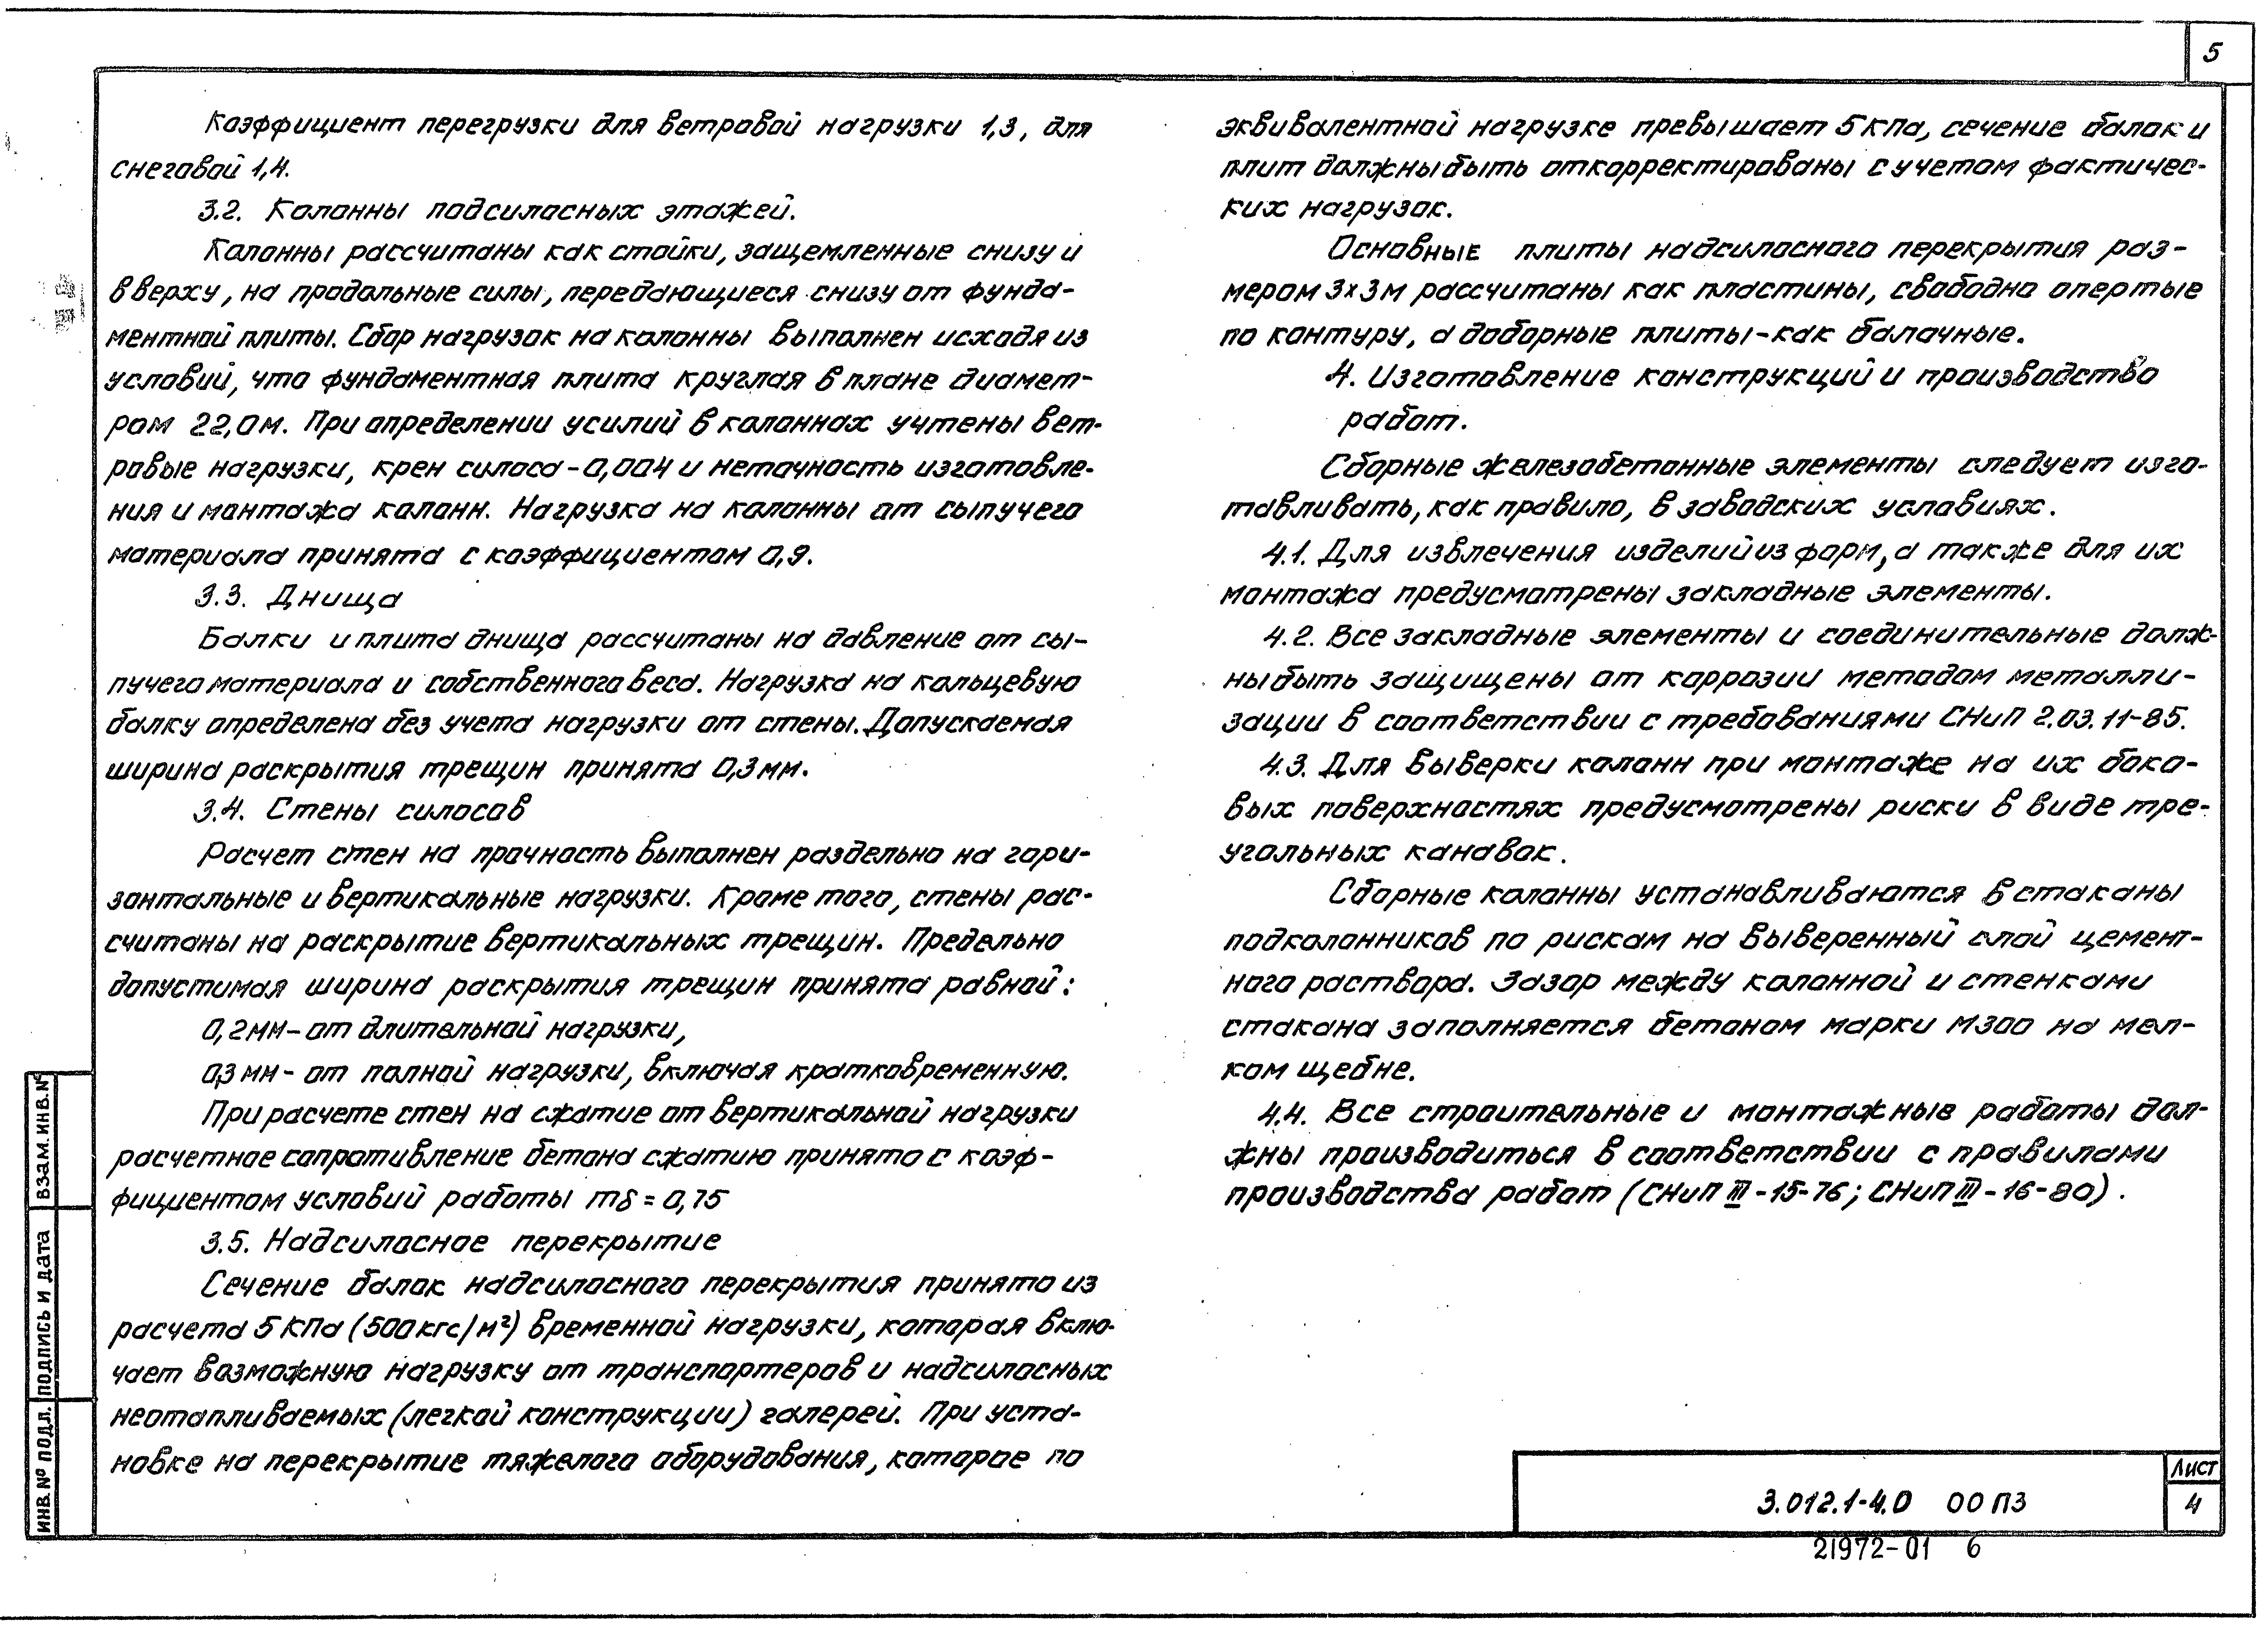 5
Коэффициент перегрузки для ветровой нагрузки 1,3, для
снеговой 1,4.
3.2. Колонны подсилосных этажей.
Колонны рассчитаны как стойки, защемленные снизу и
вверху, на продольные силы, передающиеся снизу от фунда-
ментной плиты. Сбор нагрузок на колонны выполнен исходя из
условий, что фундаментная плита круглая в плане диамет-
ром 22,0м. При определении усилий в колоннах учтены вет-
ровые нагрузки, крен силоса - 0,004 и неточность изготовле-
ния и монтажа колонн. Нагрузка на колонны от сыпучего
материала принята с коэффициентом 0,9.
3.3. Днища
Балки и плита днища рассчитаны на давление от сы-
пучего материала и собственного веса. Нагрузка на кольцевую
балку определена без учета нагрузки от стены. Допускаемая
ширина раскрытия трещин принята 0,3мм.
3.4. Стены силосов
Расчет стен на прочность выполнен раздельно на гори-
зонтальные и вертикальные нагрузки. Кроме того, стены рас-
считаны на раскрытие вертикальных трещин. Предельно
допустимая ширина раскрытия трещин принята равной:
0,2мм - от длительной нагрузки,
0,3мм - от полной нагрузки, включая кратковременную.
При расчете стен на сжатие от вертикальной нагрузки
расчетное сопротивление бетона сжатию принято с коэф-
фициентом условий работы mб = 0,75
3.5. Надсилосное перекрытие
Сечение балок надсилосного перекрытия принято из
расчета 5 кПа (500кгс/м²) временной нагрузки, которая вклю-
чает возможную нагрузку от транспортеров и надсилосных
неотапливаемых (легкой конструкции) галерей. При уста-
новке на перекрытие тяжелого оборудования, которое по
эквивалентной нагрузке превышает 5кПа, сечение балок и
плит должны быть откорректированы с учетом фактичес-
ких нагрузок.
Основные плиты надсилосного перекрытия раз-
мером 3х3м рассчитаны как пластины, свободно опертые
по контуру, а доборные плиты - как балочные.
4. Изготовление конструкций и производство
работ.
Сборные железобетонные элементы следует изго-
тавливать, как правило, в заводских условиях.
4.1. Для извлечения изделий из форм, а также для их
монтажа предусмотрены закладные элементы.
4.2. Все закладные элементы и соединительные долж-
ны быть защищены от коррозии методом металли-
зации в соответствии с требованиями СНиП 2.03.11-85.
4.3. Для выверки колонн при монтаже на их боко-
вых поверхностях предусмотрены риски в виде тре-
угольных канавок.
Сборные колонны устанавливаются в стаканы
подколонников по рискам на выверенный слой цемент-
ного раствора. Зазор между колонной и стенками
стакана заполняется бетоном марки М300 на мел-
ком щебне.
4.4. Все строительные и монтажные работы дол-
жны производиться в соответствии с правилами
производства работ (СНиП III-15-76; СНиП III-16-80).
ИНВ.№ ПОДЛ.
ПОДПИСЬ И ДАТА
ВЗАМ.ИНВ.№
3.012.1-4.0 00 ПЗ
Лист
4
21972-01 6